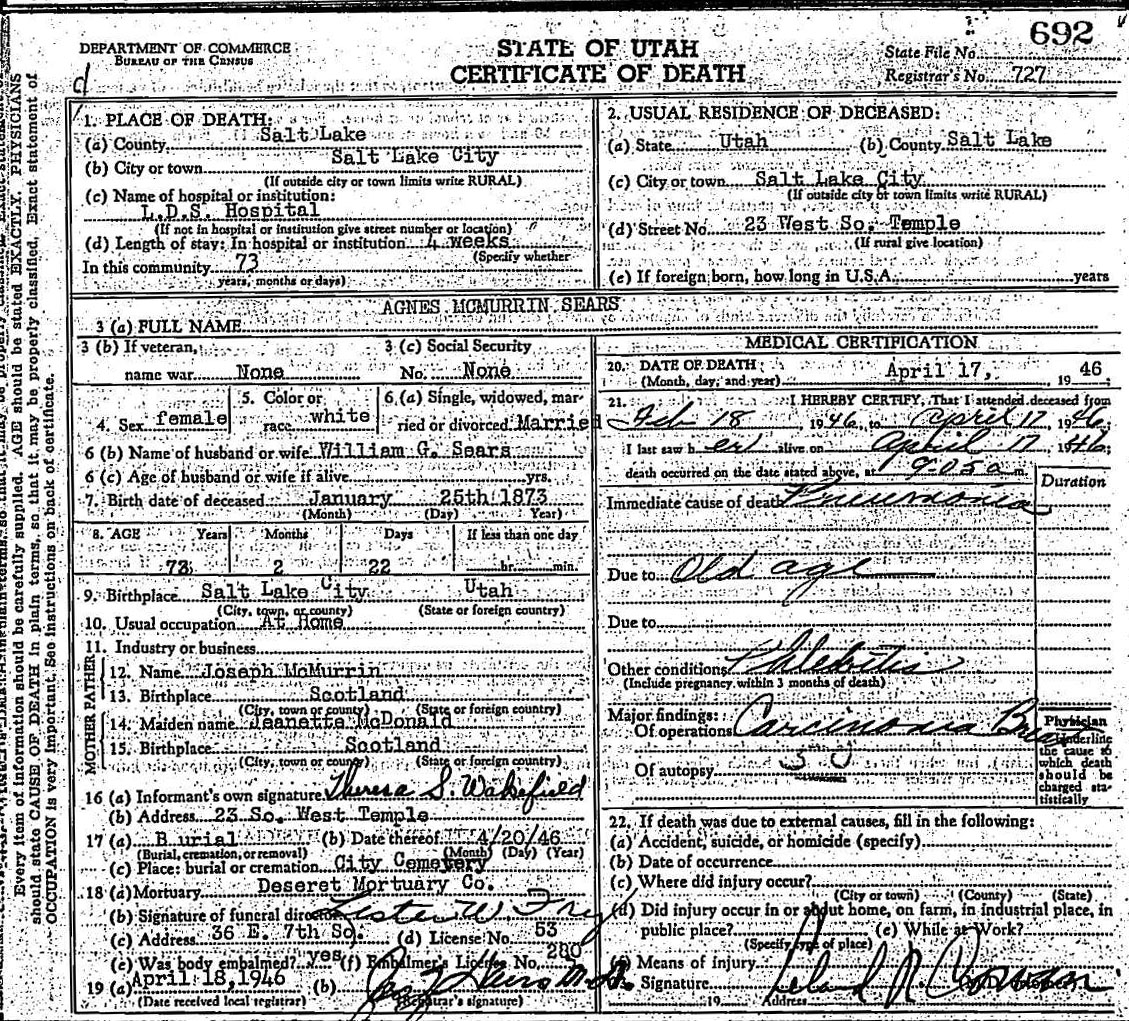 692
DEPARTMENT OF COMMERCE
BUREAU OF THE CENSUS
STATE OF UTAH
CERTIFICATE OF DEATH
State File No.
Registrar's No. 727
d
Every item of information should be carefully supplied. AGE should be stated EXACTLY. PHYSICIANS
should state CAUSE OF DEATH in plain terms, so that it may be properly classified. Exact statement of
OCCUPATION is very important. See instructions on back of certificate.
1. PLACE OF DEATH:
(a) County Salt Lake
(b) City or town Salt Lake City
(If outside city or town limits write RURAL)
(c) Name of hospital or institution:
L.D.S. Hospital
(If not in hospital or institution give street number or location)
(d) Length of stay: In hospital or institution 4 weeks
(Specify whether
In this community 73
years, months or days)
2. USUAL RESIDENCE OF DECEASED:
(a) State Utah (b) County Salt Lake
(c) City or town Salt Lake City
(If outside city or town limits write RURAL)
(d) Street No. 23 West So. Temple
(If rural give location)
(e) If foreign born, how long in U.S.A. years
AGNES MCMURRIN SEARS
3 (a) FULL NAME
3 (b) If veteran, 3 (c) Social Security
name war None No. None
4. Sex female 5. Color or race white 6. (a) Single, widowed, married or divorced Married
6 (b) Name of husband or wife William G. Sears
6 (c) Age of husband or wife if alive yrs.
7. Birth date of deceased January 25th 1873
(Month) (Day) Year)
8. AGE Years Months Days If less than one day
73 2 22 hr. min.
9. Birthplace Salt Lake City Utah
(City, town, or county) (State or foreign country)
10. Usual occupation At Home
11. Industry or business
FATHER
12. Name Joseph McMurrin
13. Birthplace Scotland
(City, town or county) (State or foreign country)
MOTHER
14. Maiden name Jeanette McDonald
15. Birthplace Scotland
(City, town or county) (State or foreign country)
16 (a) Informant's own signature Theresa S. Wakefield
(b) Address 23 So. West Temple
17 (a) Burial (b) Date thereof 4/20/46
(Burial, cremation, or removal) (Month) (Day) (Year)
(c) Place: burial or cremation City Cemetery
18 (a) Mortuary Deseret Mortuary Co.
(b) Signature of funeral director Lester W Fry
(c) Address 36 E. 7th So. (d) License No. 53
(e) Was body embalmed? yes (f) Embalmer's License No. 280
19 (a) April 18, 1946 (b)
(Date received local registrar) (Registrar's signature)
MEDICAL CERTIFICATION
20. DATE OF DEATH: April 17, 19 46
(Month, day, and year)
21. I HEREBY CERTIFY, That I attended deceased from
Feb 18 1946, to April 17, 1946;
I last saw h er alive on April 17, 1946;
death occurred on the date stated above, at 9:05 a m.
Duration
Immediate cause of death Pneumonia
Due to Old age
Due to
Other conditions Phlebitis
(Include pregnancy within 3 months of death)
Major findings:
Of operations Carcinoma
Of autopsy
Physician
Underline
the cause to
which death
should be
charged sta-
tistically
22. If death was due to external causes, fill in the following:
(a) Accident, suicide, or homicide (specify)
(b) Date of occurrence
(c) Where did injury occur?
(City or town) (County) (State)
(d) Did injury occur in or about home, on farm, in industrial place, in
public place? (e) While at Work?
(Specify type of place)
Means of injury
Signature Leland R Cowan
19 Address